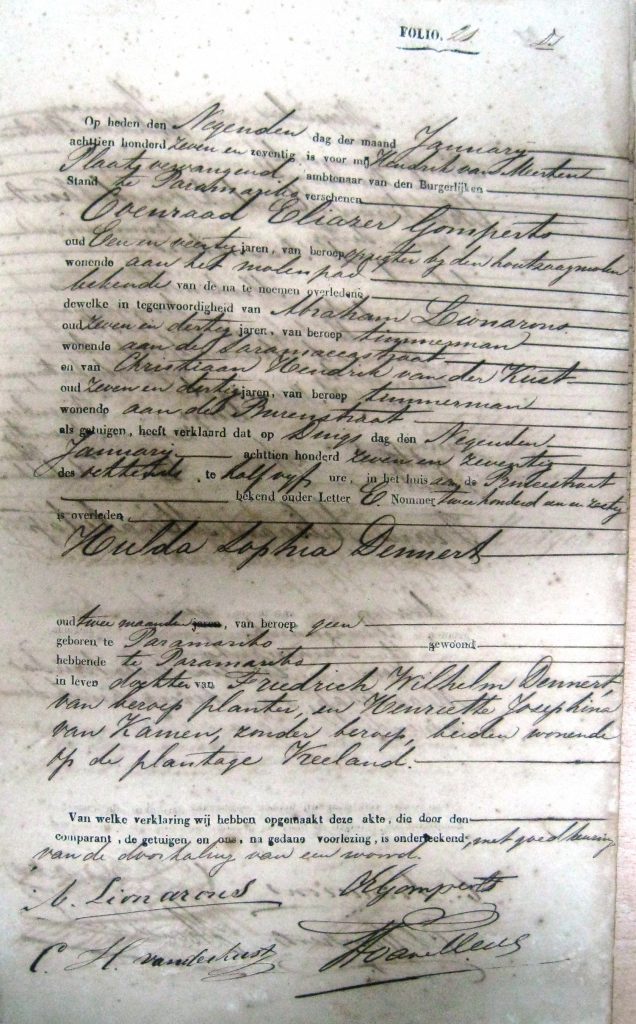 FOLIO. 21
Op heden den Negenden dag der maand January
achttien honderd zeven en zeventig is voor mij Hendrik van
Plaatsvervangend ambtenaar van den Burgerlijken
Stand te Paramaribo verschenen
Coenraad Eliazer Gomperts
oud Een en veertig jaren, van beroep opzigter bij den houtzaagmolen
wonende aan het molenpad
bekende van de na te noemen overledene
dewelke in tegenwoordigheid van Abraham Lionarons
oud zeven en dertig jaren, van beroep timmerman
wonende aan de Saramaccastraat
en van Christiaan Hendrik van der Kust
oud zeven en dertig jaren, van beroep timmerman
wonende aan de Burenstraat
als getuigen, heeft verklaard dat op Dings dag den Negenden
January achttien honderd zeven en zeventig
des ochtends, te half vyf ure, in het huis aan de
bekend onder Letter E. Nommer twee honderd een en zestig
is overleden
Hulda Sophia Dennert
oud twee maanden jaren, van beroep geen
geboren te Paramaribo gewoond
hebbende te Paramaribo
in leven dochter van Friedrich Wilhelm Dennert,
van beroep planter, en Henriette Josephina
van Kamen, zonder beroep, beiden wonende
op de plantage Keeland.
Van welke verklaring wij hebben opgemaakt deze akte, die door den
comparant, de getuigen en ons, na gedane voorlezing, is onderteekend, met goedkeuring
van de doorhaling van een woord.
A. Lionarons CEGomperts
C. H. vanderkust